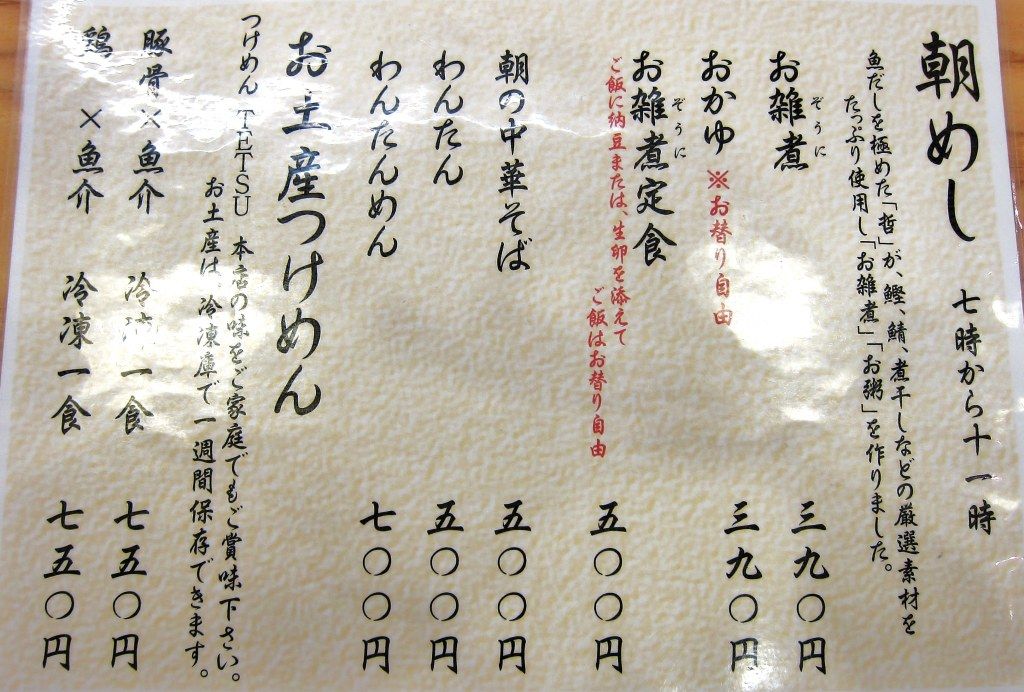 朝めし 七時から十一時
魚だしを極めた「哲」が、鰹、鯖、煮干しなどの厳選素材を
たっぷり使用し「お雑煮」「お粥」を作りました。
お雑煮 三九〇円
ぞうに
おかゆ ※お替り自由 三九〇円
お雑煮定食 五〇〇円
ぞうに
ご飯に納豆または、生卵を添えて
ご飯はお替り自由
朝の中華そば 五〇〇円
わんたん 五〇〇円
わんたんめん 七〇〇円
お土産つけめん
つけめん TETSU 本店の味をご家庭でもご賞味下さい。
お土産は、冷凍庫で一週間保存できます。
豚骨×魚介 冷凍一食 七五〇円
鶏×魚介 冷凍一食 七五〇円